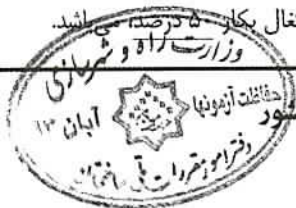 غال بکار ۵۰ درصد می‌باشد.
وزارت راه و شهرسازی
حفاظت آزمونها
آبان ۹۳
ور
دفتر امور مقررات ملی ساختمان